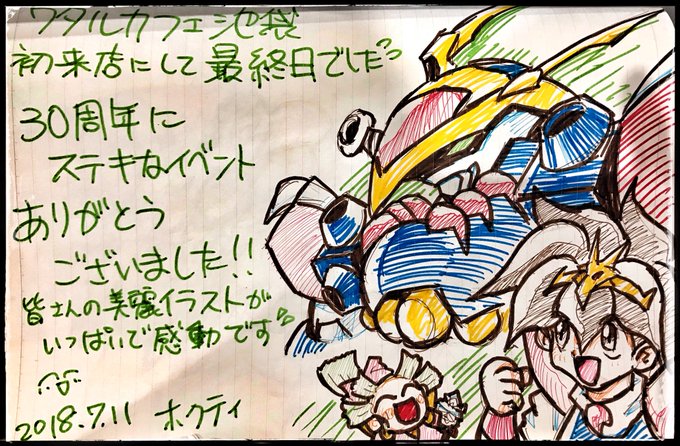 ワタルカフェ池袋
初来店にして最終日でした
30周年に
ステキなイベント
ありがとう
ございました!!
皆さんの美麗イラストが
いっぱいで感動です
2018.7.11 ホクティ